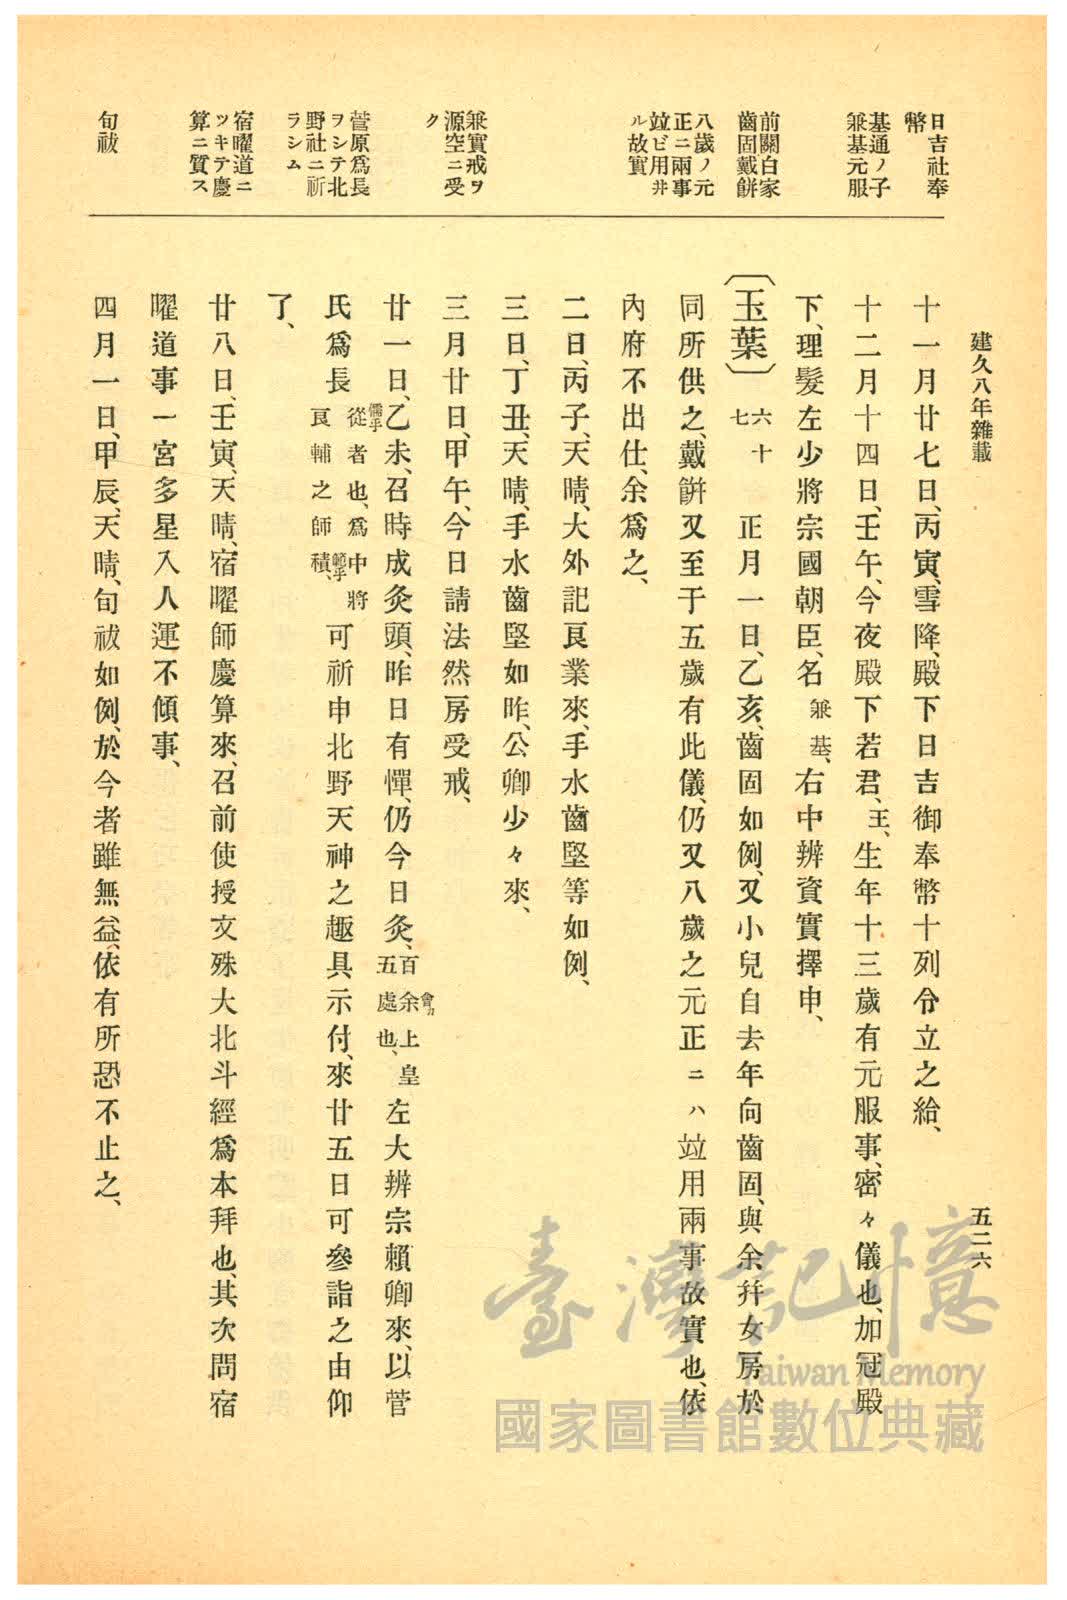 建久八年雜載
五二六
日吉社奉
幣
基通ノ子
兼基元服
前關白家
齒固戴餅
八歲ノ元
正ニ兩事
竝ビ用井
ル故實
兼實戒ヲ
源空ニ受
ク
菅原爲長
ヲシテ北
野社ニ祈
ラシム
宿曜道ニ
ツキテ慶
算ニ質ス
旬祓
十一月廿七日、丙寅、雪降、殿下日吉御奉幣十列令立之給、
十二月十四日、壬午、今夜殿下若君、王、生年十三歲有元服事、密々儀也、加冠殿
下、理髮左少將宗國朝臣、名兼基、右中辨資實擇申、
〔玉葉〕六十七 正月一日、乙亥、齒固如例、又小兒自去年向齒固、與余幷女房於
同所供之、戴餠又至于五歲有此儀、仍又八歲之元正ニハ竝用兩事故實也、依
內府不出仕、余爲之、
二日、丙子、天晴、大外記良業來、手水齒堅等如例、
三日、丁丑、天晴、手水齒堅如昨、公卿少々來、
三月廿日、甲午、今日請法然房受戒、
廿一日、乙未、召時成灸頭、昨日有憚、仍今日灸、百余會カ上皇五處也、左大辨宗賴卿來、以菅
氏爲長儒乎從者也、爲中將良輔之師積、範乎可祈申北野天神之趣具、示付、來廿五日可參詣之由仰
了、
廿八日、壬寅、天晴、宿曜師慶算來、召前使授文殊大北斗經爲本拜也、其次問宿
曜道事一宮多星入八運不傾事、
四月一日、甲辰、天晴、旬祓如例、於今者雖無益、依有所恐不止之、
臺灣記憶
Taiwan Memory
國家圖書館數位典藏